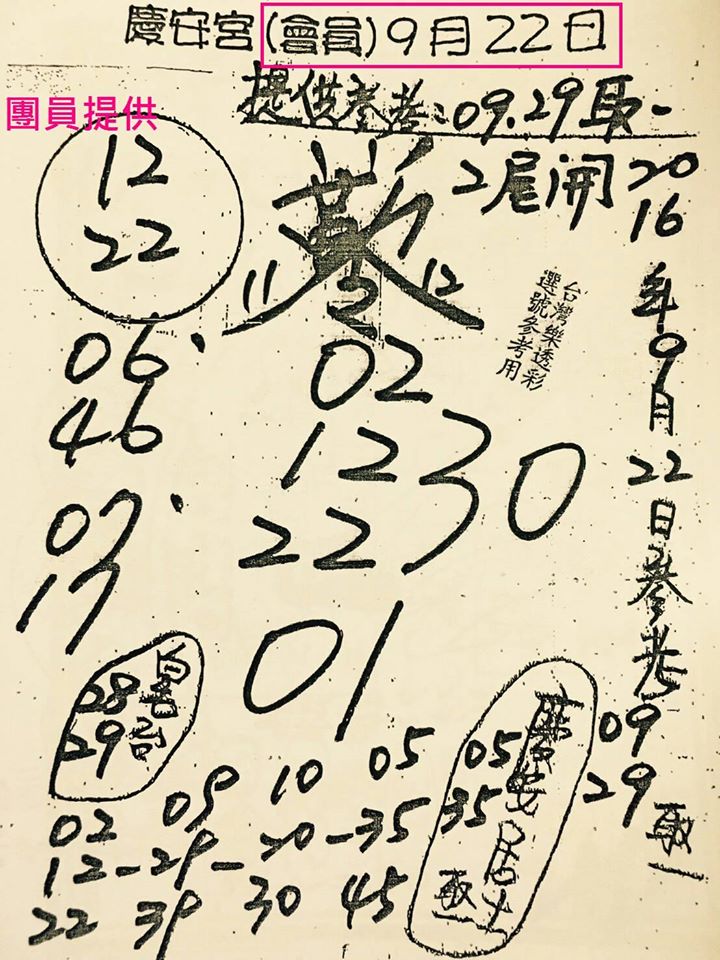 慶安宮(會員)9月22日
團員提供
提供參考:09.29取一
2尾開
2016年9月22日參考
09
29
取一
12
22
11
12
台灣樂透彩
選號參考用
06.
46
02
12
22
30
07.
17
01
28
29
05
35
取一
02 09 10 05
12-29-20-35
22 39 30 45